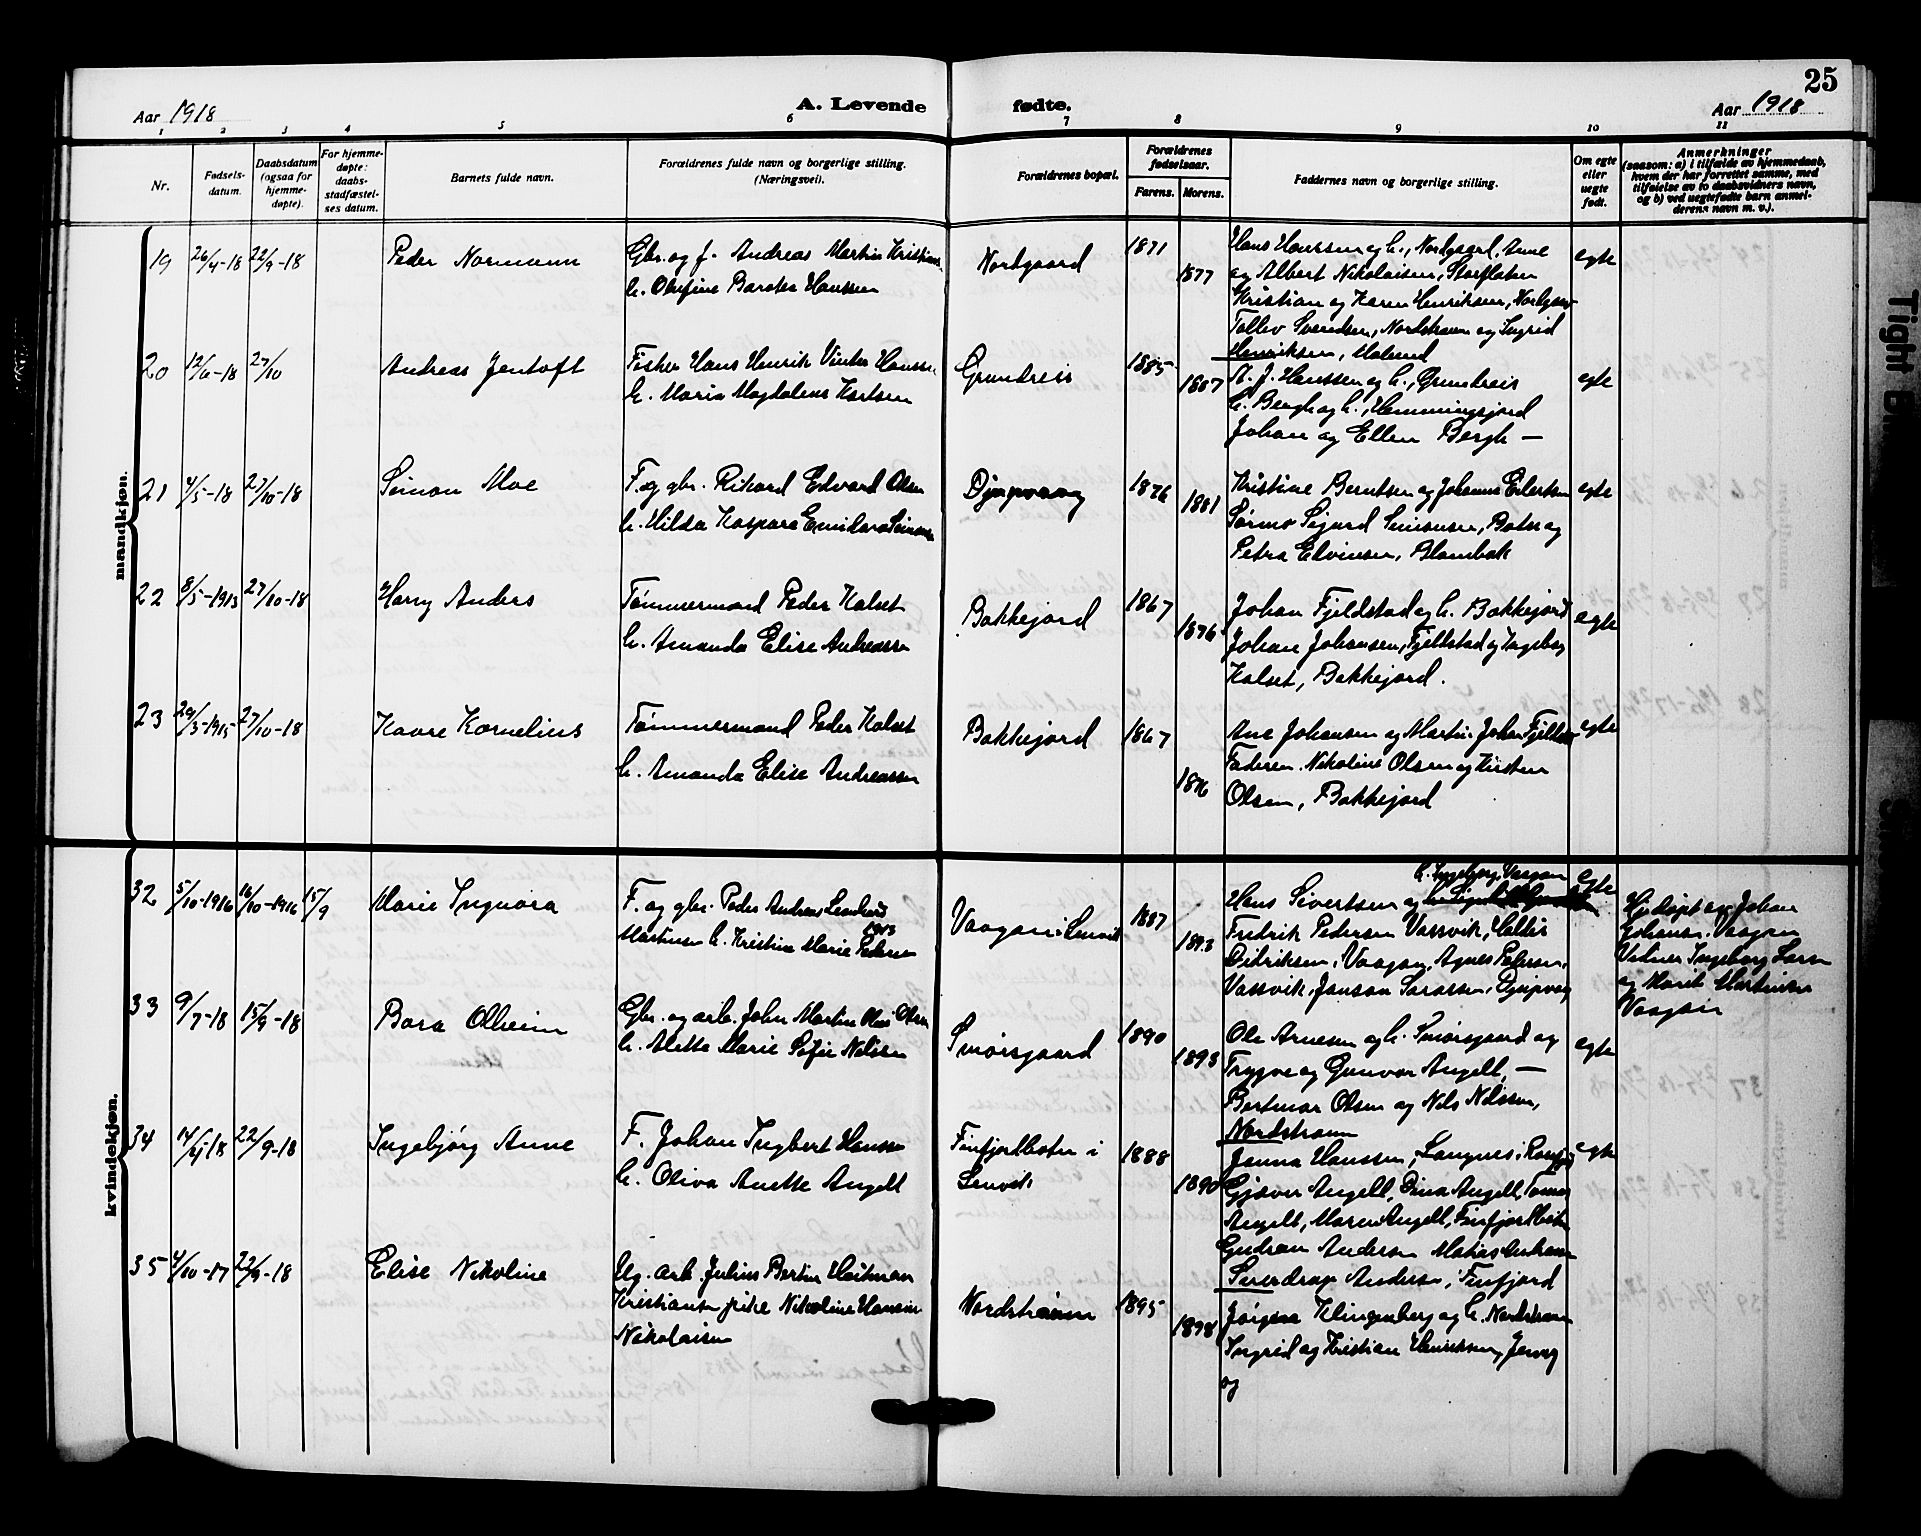 25
Aar 1918
A. Levende
fødte.
Aar 1918
1 2 3 4 5 6 7 8 9 10 11
Nr.
Fødsels-
datum.
Daabsdatum
(ogsaa for
hjemme-
døpte).
For hjemme-
døpte:
daabs-
stadfæstel-
ses datum.
Barnets fulde navn.
Forældrenes fulde navn og borgerlige stilling.
(Næringsvei).
Forældrenes bopæl.
Forældrenes
fødselsaar.
Farens.
Morens.
Faddernes navn og borgerlige stilling.
Om egte
eller
uegte
født.
Anmerkninger
(saasom: a) i tilfælde av hjemmedaab,
hvem der har forrettet samme, med
tilføielse av to daabsvidners navn,
og b) ved uegtefødte barn anmel-
derens navn m. v.).
mandkjøn.
19
26/4-18
22/9-18
Peder Normann
Gbr. og f. Andreas Martin
h. Olufine Hanssen
Nordgaard
1871
1877
Hans Hanssen og h., Nordgaard, Anne
og Albert Nikolaisen, Storfloten
Kristian og Karen Henriksen,
Tollev Svendsen, Nordstraum og Ingrid
Henriksen,
egte
20
12/6-18
27/10
Andreas Jentoft
Fisker Hans Henrik Hanssen
h. Maria Magdalena
Grundreis
1885
1887
A. J. Hanssen og h., Grundreis
h. Bergh og h., Hemmingsjord
Johan og Ellen Bergh —
egte
21
4/5-18
27/10-18
Simon Moe
F. og gbr. Rikard Edvard Olsen
h. Hilda Kaspara
Djupvaag
1876
1881
Kristine Berntsen og Johannes
Sørmo Sigurd Simonsen, og
Petra Edvinsen,
egte
22
8/5-1913
27/10-18
Harry Anders
Tømmermand Peder Kalset
h. Amanda Elise Andreassen
Bakkejord
1867
1876
Johan Fjeldstad og h. Bakkejord
Johan Johansen, Fjeldstad og Ingeborg
Kalset, Bakkejord.
egte
23
29/3-1915
27/10-18
Kaare Kornelius
Tømmermand Peder Kalset
h. Amanda Elise Andreassen
Bakkejord
1867
1876
Ane Johansen og Martin Johan
Faderen. Nikoline Olsen og Kirsten
Olsen, Bakkejord
egte
kvindekjøn.
32
5/10-1916
16/10-1916
15/9
Marie Ingvora
F. og gbr. Peder Andreas
Martinsen h. Kristine Marie Pedersen
Vaagan i Lenvik
1887
1893
h. Ingeborg, Vaagan
Hans Sivertsen og
Fredrik Pedersen Vassvik,
Didriksen, Vaagan, Agnes Pedersen,
Vassvik, Djupvaag
egte
Hjdøpt av Johan
Johansen, Vaagan
Vidner Ingeborg
og Marit Martinsen
Vaagan
33
9/7-18
15/9-18
Bora Olheim
Gbr. og arb. John Martin Olsen
h. Aletta Marie Sofie Nilsen
Smørsgaard
1890
1893
Ole Arnesen og h. Smørsgaard og
Trygve og Gunvor Angell, —
Bertmar Olsen og Nils Nilssen,
Nordstraum
egte
34
14/4-18
22/9-18
Ingebjørg Anne
F. Johan Ingbert Hanssen
h. Oliva Anette Angell
Finfjordbotn i
Lenvik
1888
1890
Janna Hanssen, Langnes i
Gjæver Angell, Dina Angell,
Angell, Maren Angell, Finfjordbotn
Gudrun Andersen Matias
Sverdrup Andersen, Finfjord
egte
35
4/10-17
22/9-18
Elise Nikoline
Ug. arb. Julius Bertin Heitman
Kristiansen pike Nikoline
Nikolaisen
Nordstraum
1895
1898
Jørgen Klingenberg og h. Nordstraum
Ingrid og Kristian Henriksen,
og